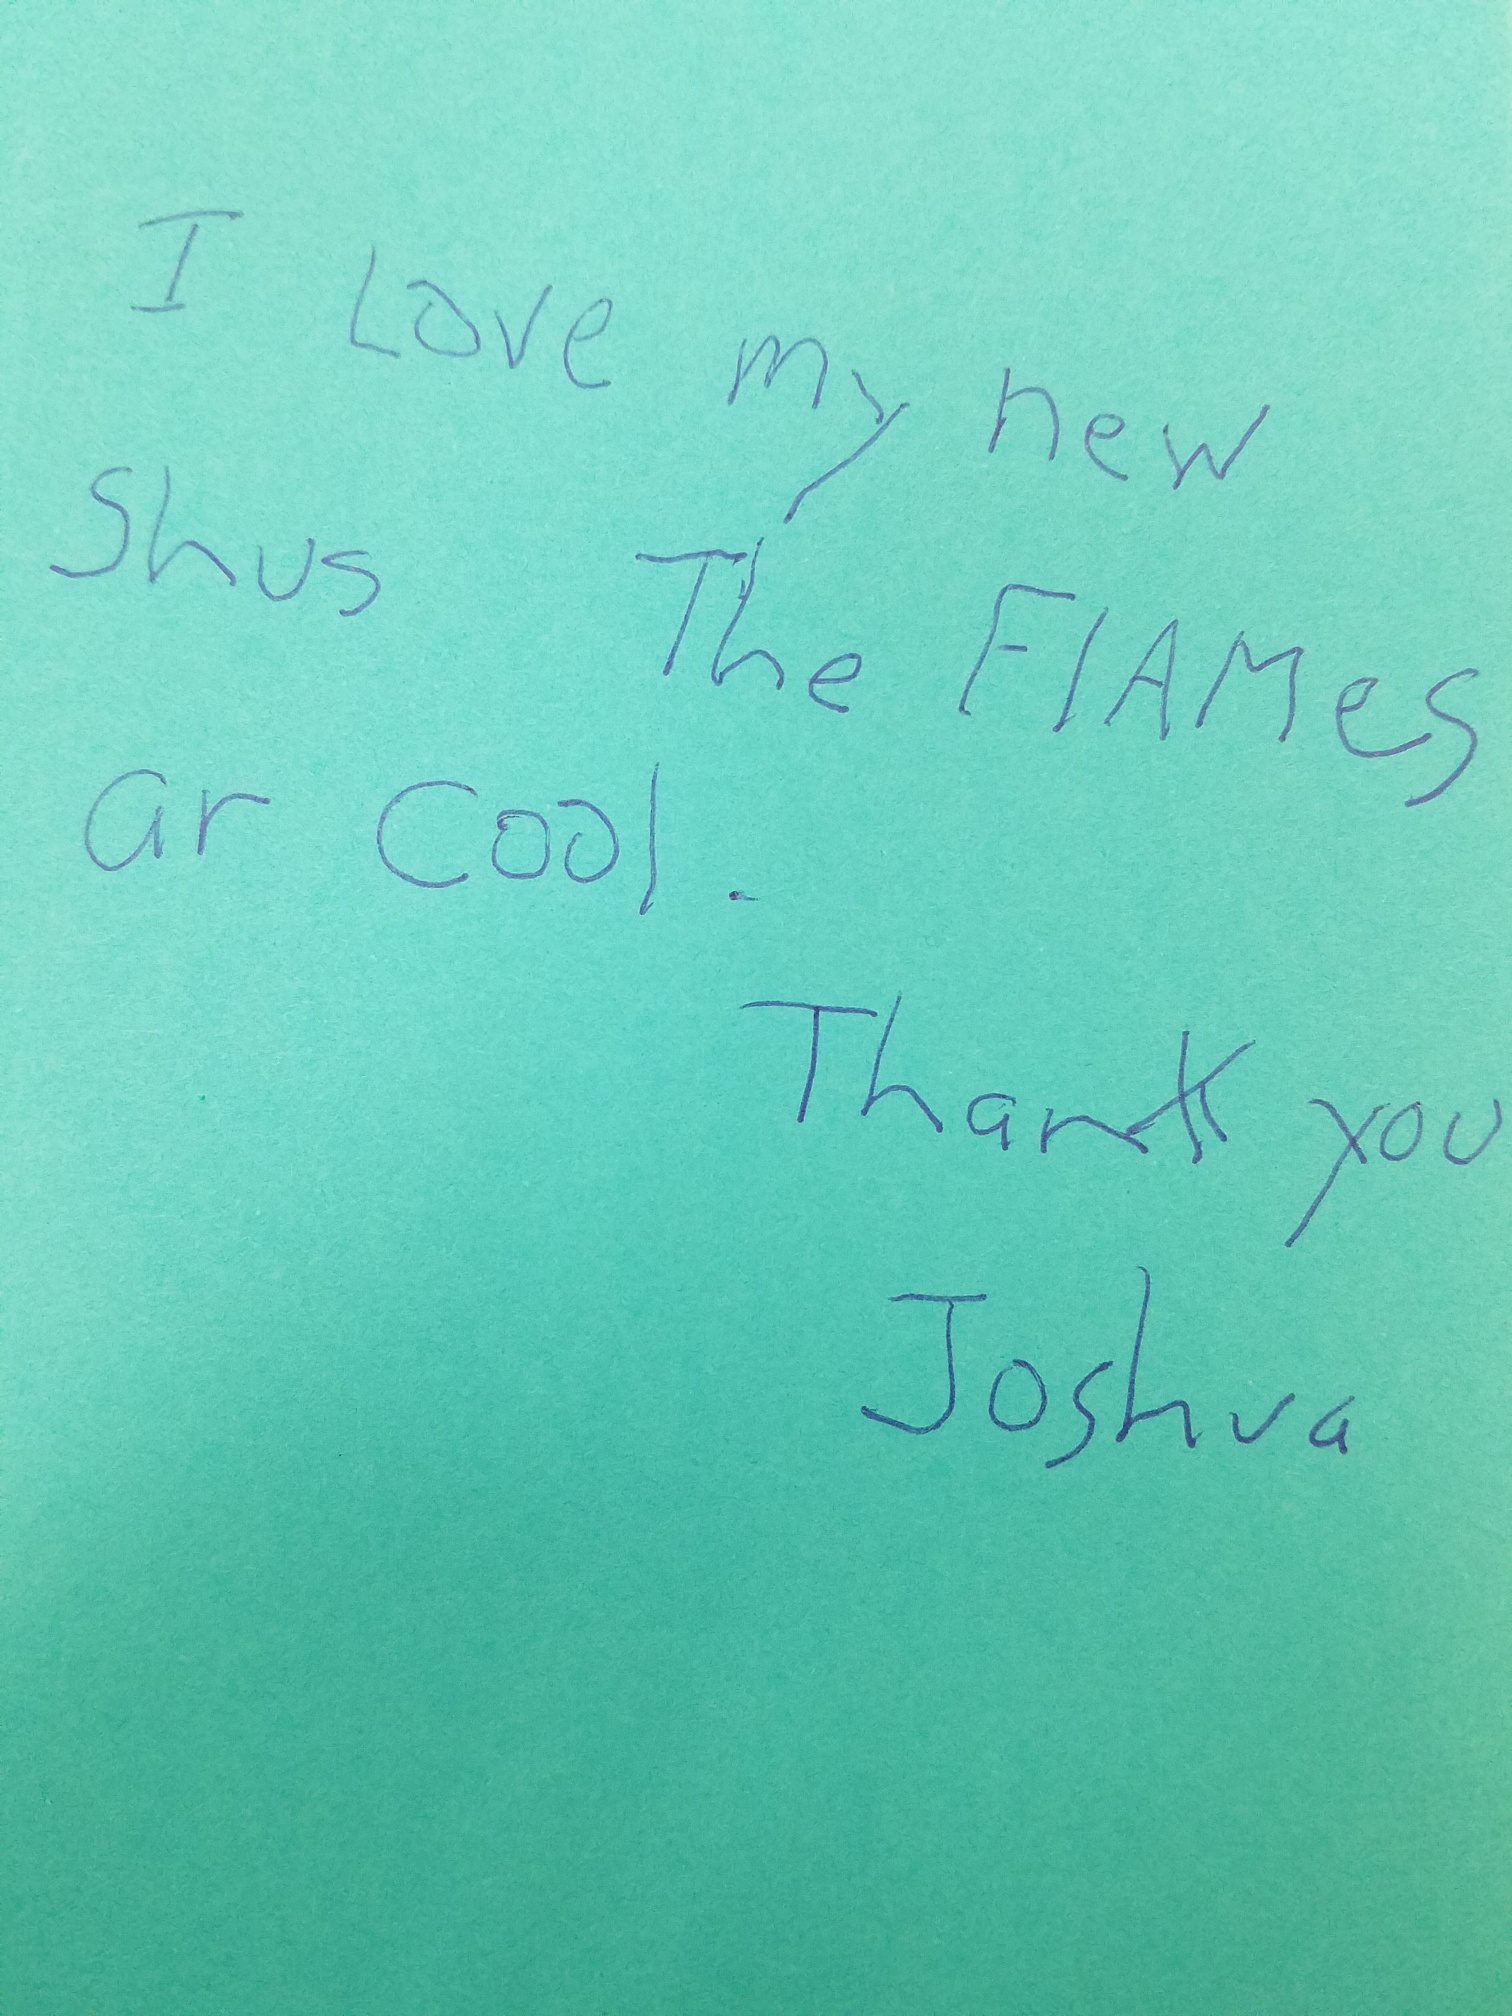 I Love my new
Shus The FlAMes
ar Cool.
Thank you
Joshua